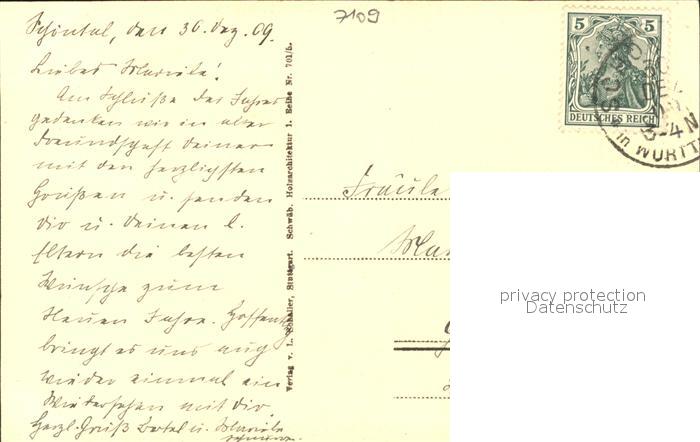 Schöntal, den 30. Dez. 09.
7109
Liebes Mariele!
Am Schluße des Jahres
gedenken wir in alter
Freundschaft deiner
mit den herzlichsten
Grüßen u. senden
dir u. deinen l.
Eltern die besten
Wünsche zum
Neuen Jahre. Hoffentl.
bringt es uns auch
wieder einmal ein
Wiedersehen mit dir.
Herzl. Gruß u. Mariele
Verlag v. L. Schaller, Stuttgart. Schwäb. Holzarchitektur 1. Reihe Nr. 701/5.
5 5
DEUTSCHES REICH
in WÜRTT
Fräule
privacy protection
Datenschutz